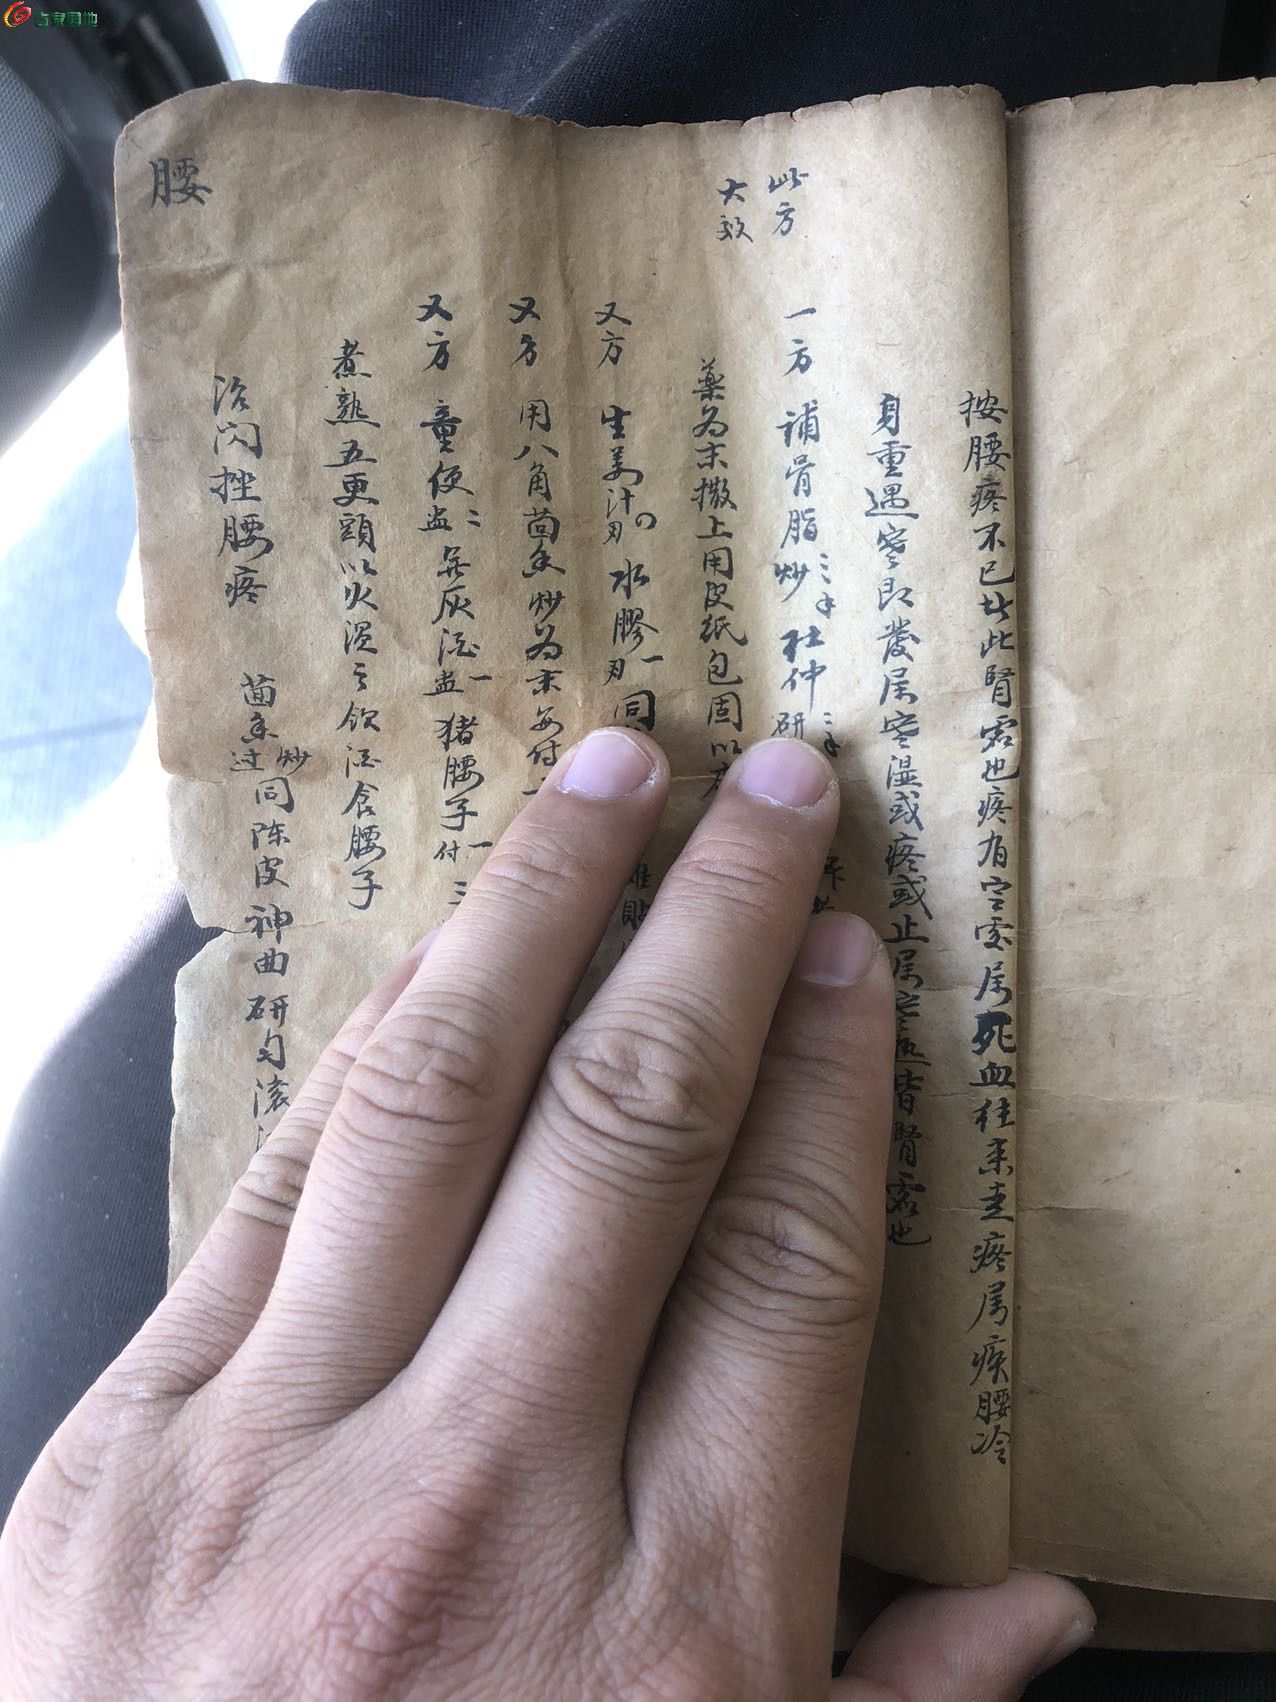 按腰疼不已 此腎虛也疼有定處属死血往来走疼属痰腰冷
身重遇寒即發属寒湿或疼或止属 皆腎虛也
此方
大效
一方 補骨脂炒三 杜仲研三
藥為末撒上用皮紙包固以
又方 生姜汁 水膠一 同
又方 用八角茴香炒為末每付
又方 童便二盅 無灰酒一盅 猪腰子一付 三
煮熟五更頭以火温之飲酒食腰子
治閃挫腰疼
茴香炒过同陈皮神曲研匀滚
腰